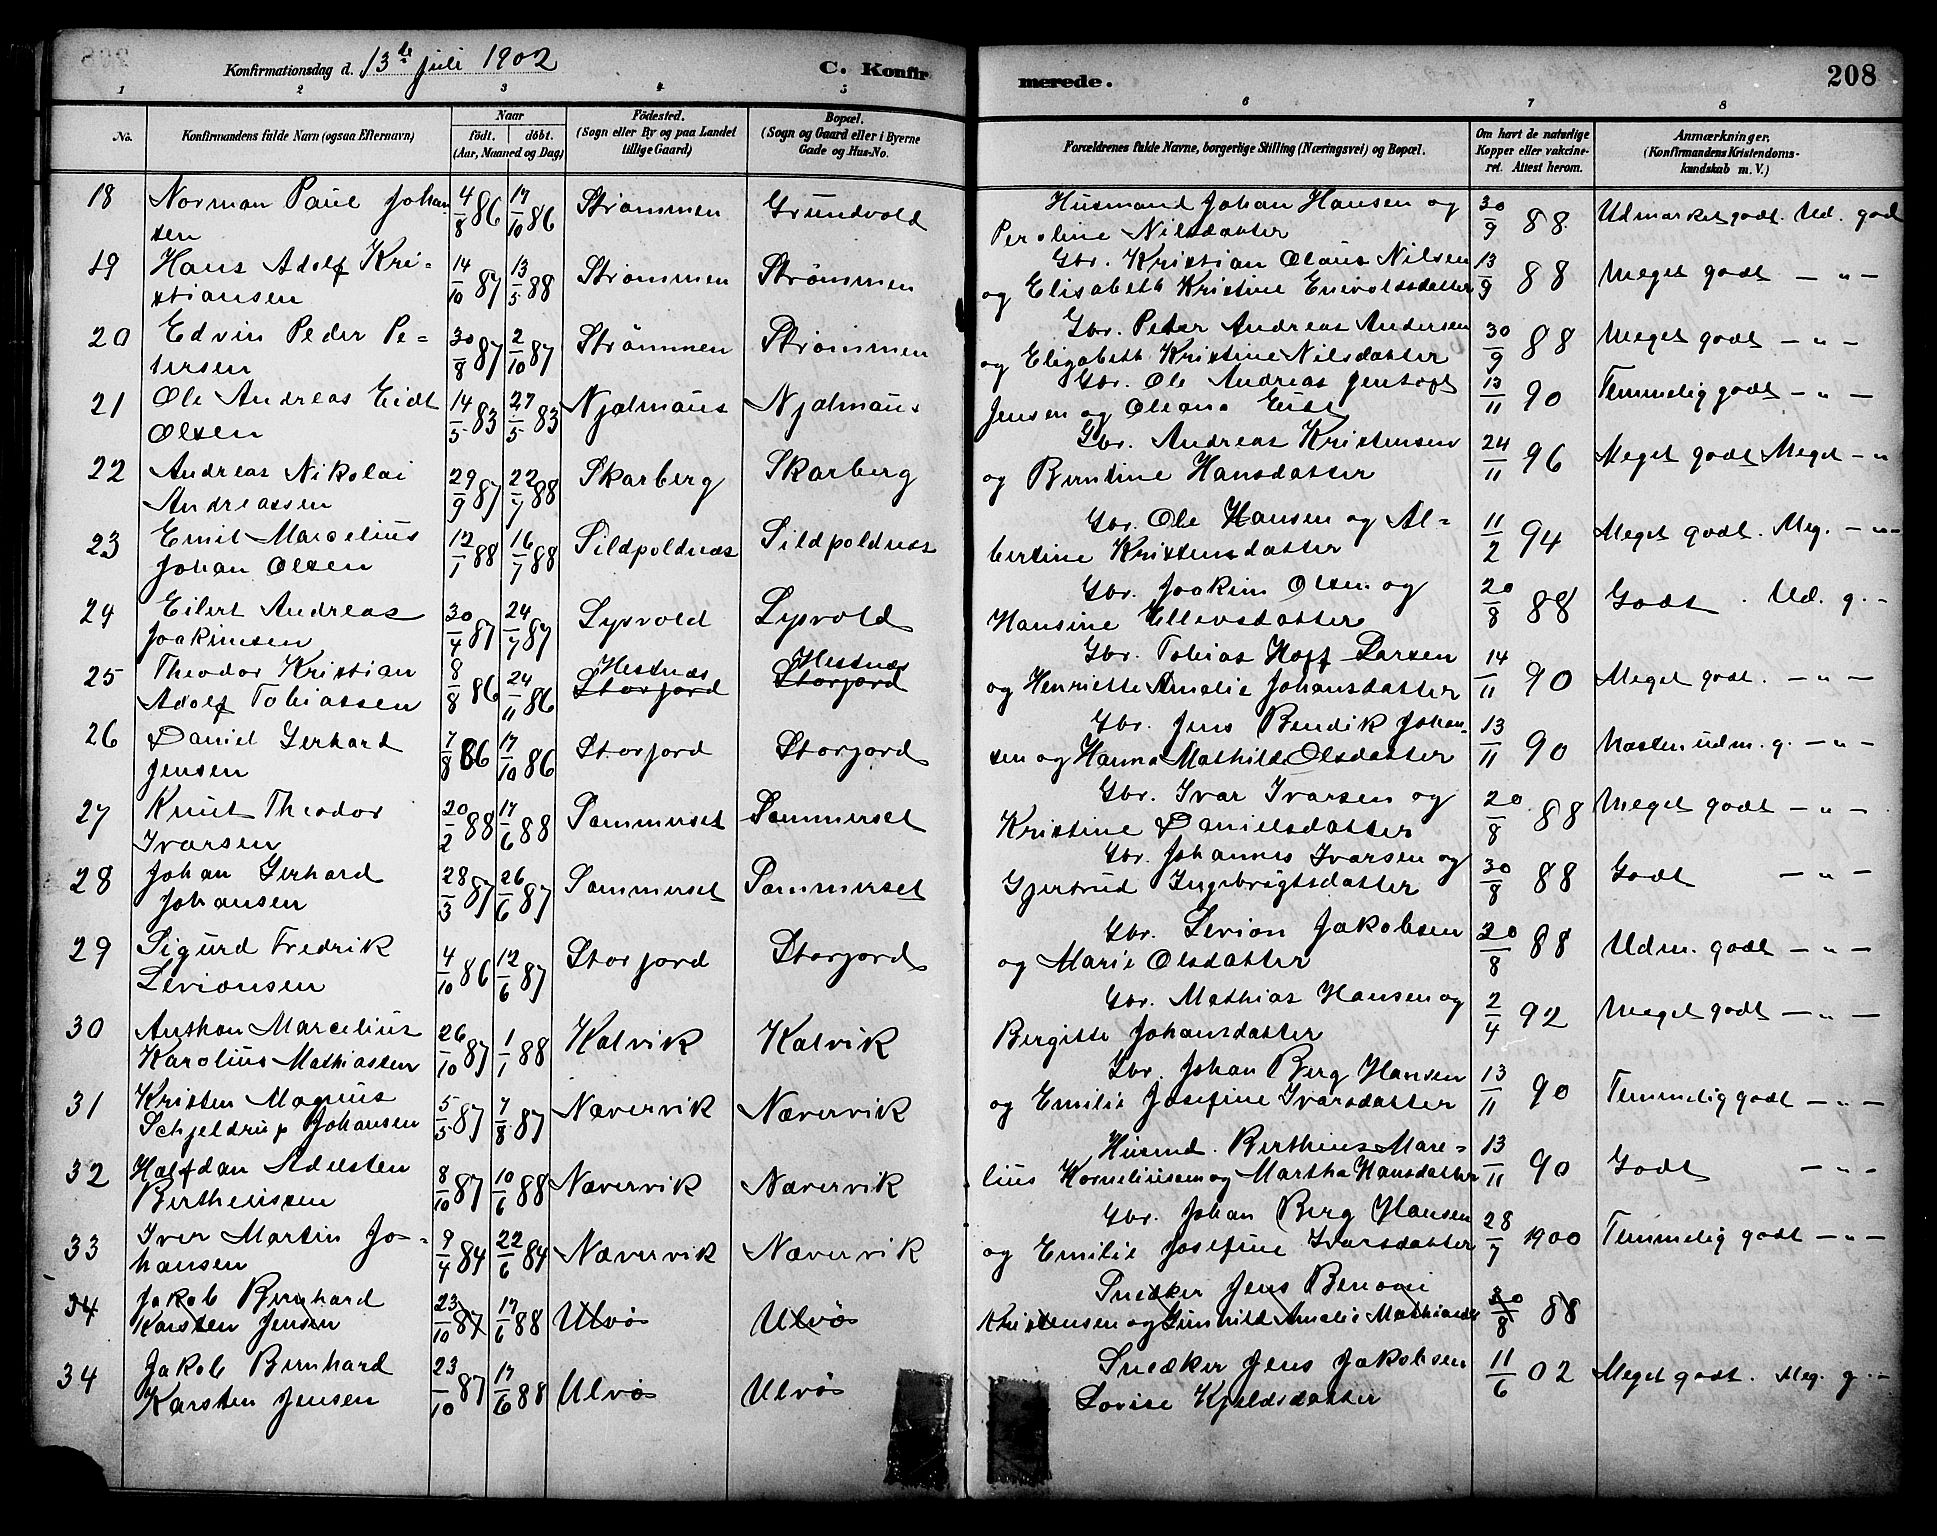 Konfirmationsdag d. 13de juli 1902 C. Konfirmerede. 208
1 2 3 4 5 6 7 8
No. Konfirmandens fulde Navn (ogsaa Efternavn) Naar født. døbt. (Aar, Maaned og Dag) Fødested. (Sogn eller By og paa Landet tillige Gaard) Bopæl. (Sogn og Gaard eller i Byerne Gade og Hus-No. Forældrenes fulde Navne, borgerlige Stilling (Næringsvei) og Bopæl. Om havt de naturlige Kopper eller vakcineret. Attest herom. Anmærkninger, (Konfirmandens Kristendomskundskab m. V.)
18 Norman Paul Johansen 4/8 86 17/10 86 Strømmen Grundvold Husmand Johan Hansen og Peroline Nilsdatter 30/9 88 Udmarket godt. Ud. godt
19 Hans Adolf Kristiansen 14/10 87 13/5 88 Strømmen Strømmen Gbr. Kristian Olaus Nilsen og Elisabeth Kristine Enevoldsdatter 13/9 88 Meget godt — „ —
20 Edvin Peder Petersen 30/8 87 2/10 87 Strømmen Strømmen Gbr. Peter Andreas Andersen og Elisabeth Kristine Nilsdatter 30/9 88 Meget godt — „ —
21 Ole Andreas Eidt Olsen 14/5 83 27/5 83 Njalmaus Njalmaus Gbr. Ole Andreas Jentoft Jensen og Oliana Eidt 13/11 90 Temmelig godt — „ —
22 Andreas Nikolai Andreassen 29/9 87 22/7 88 Skarberg Skarberg Gbr. Andreas Kristensen og Berntine Hansdatter 24/11 96 Meget godt Meget — „
23 Emil Marcelius Johan Olsen 12/1 88 16/7 88 Sildpoldnæs Sildpoldnæs Gbr. Ole Hansen og Albertine Kristensdatter 11/2 94 Meget godt. Meg. — „ —
24 Eilert Andreas Joakimsen 30/4 87 24/7 87 Lysvold Lysvold Gbr. Joakim Olsen og Hansine Ellevsdatter 20/8 88 Godt. Ud. g. —
25 Theodor Kristian Adolf Tobiassen 8/8 86 24/11 86 Hestnæs Storjord Hestnæs Storjord Gbr. Tobias Hoff Larsen og Henriette Amalie Johansdatter 14/11 90 Meget godt. — „ —
26 Daniel Gerhard Jensen 7/8 86 17/10 86 Storjord Storjord Gbr. Jens Bendik Johansen og Hanna Mathilde Olsdatter 13/11 90 Næsten udm. g. — „ —
27 Knut Theodor Ivarsen 20/2 88 17/6 88 Sommerset Sommerset Gbr. Ivar Ivarsen og Kristine Danielsdatter 20/8 88 Meget godt — „ —
28 Johan Gerhard Johansen 28/3 87 26/6 87 Sommerset Sommerset Gbr. Johannes Ivarsen og Gjertrud Ingebrigtsdatter 30/8 88 Godt — „ —
29 Sigurd Fredrik Levionsen 4/10 86 12/6 87 Storjord Storjord Gbr. Levion Jakobsen og Marie Olsdatter 20/8 88 Udm. godt — „ —
30 Anthon Marcelius Karolius Mathiassen 26/10 87 1/1 88 Kalvik Kalvik Gbr. Mathias Hansen og Bergitte Johansdatter 2/4 92 Meget godt — „ —
31 Kristen Magnus Schjeldrup Johansen 5/5 87 7/8 87 Nævervik Nævervik Gbr. Johan Berg Hansen og Emilie Josefine Ivarsdatter 13/11 90 Temmelig godt — „ —
32 Halfdan Adelsten Bertheussen 8/10 87 10/6 88 Nævervik Nævervik Husmd. Bertheus Marelius Korneliussen og Martha Hansdatter 13/11 90 Godt — „ —
33 Iver Martin Johansen 9/4 84 22/6 84 Nævervik Nævervik Gbr. Johan Berg Hansen og Emilie Josefine Ivarsdatter 28/7 1900 Temmelig godt — „ —
34 Jakob Bernhard Karsten Jensen 23/10 87 17/6 88 Ulvø Ulvø Snedker Jens Benoni Kristensen og Gunhild Amalie Mathiasdr 20/8 88
34 Jakob Bernhard Karsten Jensen 23/10 87 17/6 88 Ulvø Ulvø Snedker Jens Jakobsen Lovise Kjeldsdatter 11/6 02 Meget godt. Meg. g. —